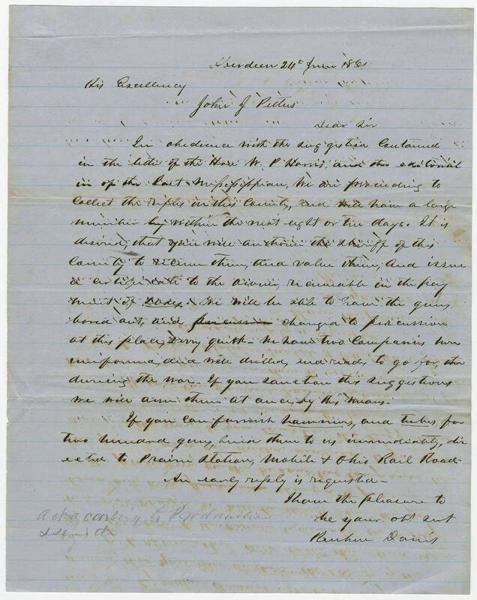 Aberdeen 24th June 1861
His Excellency
John J Pettus
Dear Sir
In obedience with the suggestion contained
in the letter of the Hon W. P. Harris, and the editorial
in of the last Mississippian, We are proceeding to
collect the rifles in this County, and will have a large
number by within the next eight or ten days. It is
desired, that you will authorise the Sheriff of this
County to receive them, and value them, and issue
a certificate to the owner, receivable in the pay
ment of taxes. We will be able to have the guns
bored out, and changed to percussion
at this place, very quick. We have two Companies now
uniformed, and well drilled, and ready to go for the
during the war. If you sanction this suggestions
we will arm them at once by this means.
If you can furnish hammers, and tubes for
two hundred guns, send them to us immediately, di
rected to Prairie Station, Mobile & Ohio Rail Road.
An early reply is requested.
I have the pleasure to
be your obt svt
Reuben Davis